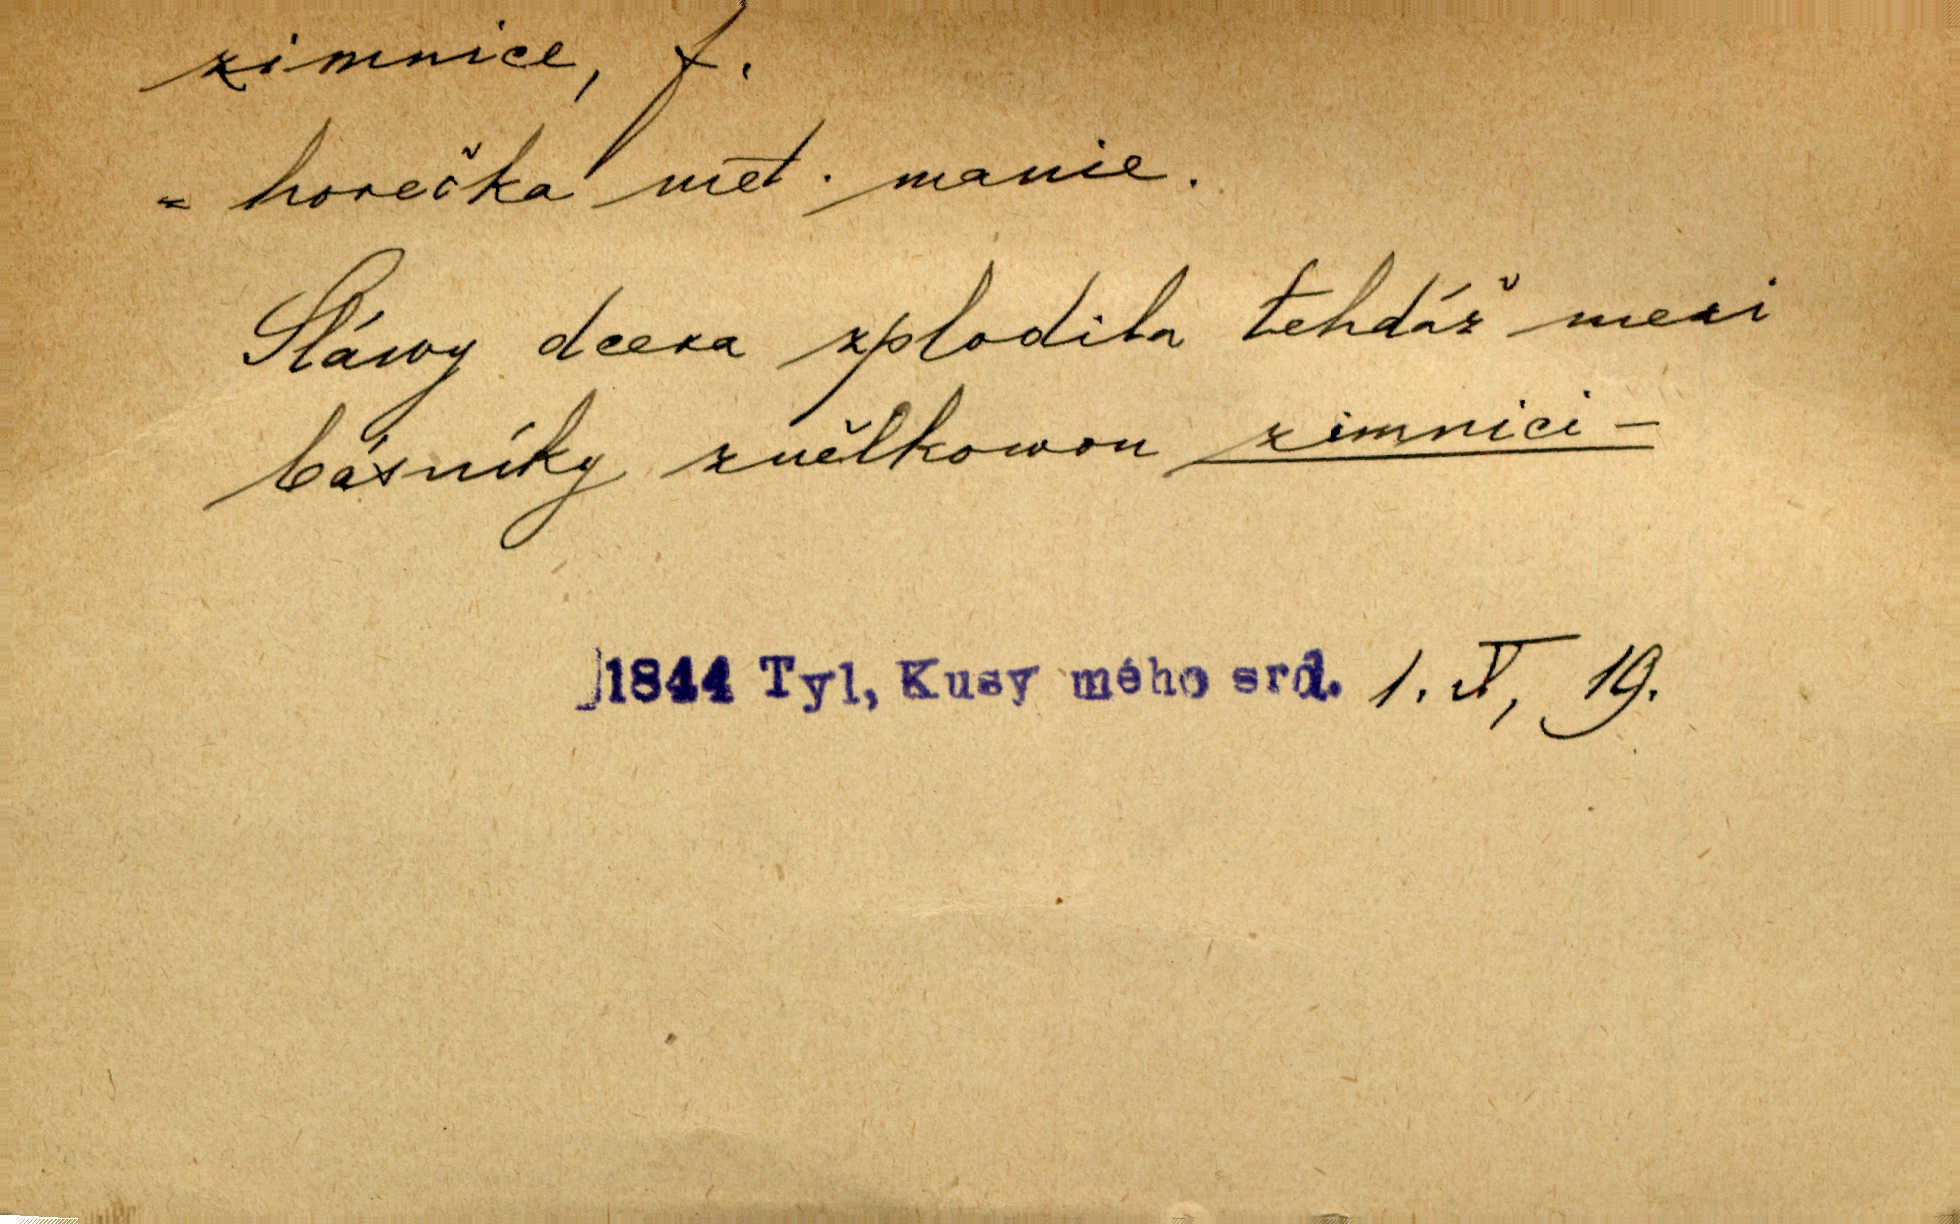 zimnice, f.
= horečka met. manie.
Sláwy dcera zplodila tehdáž mezi
básníky znělkowou zimnici –
1844 Tyl, Kusy mého srd. 1. V, 19.